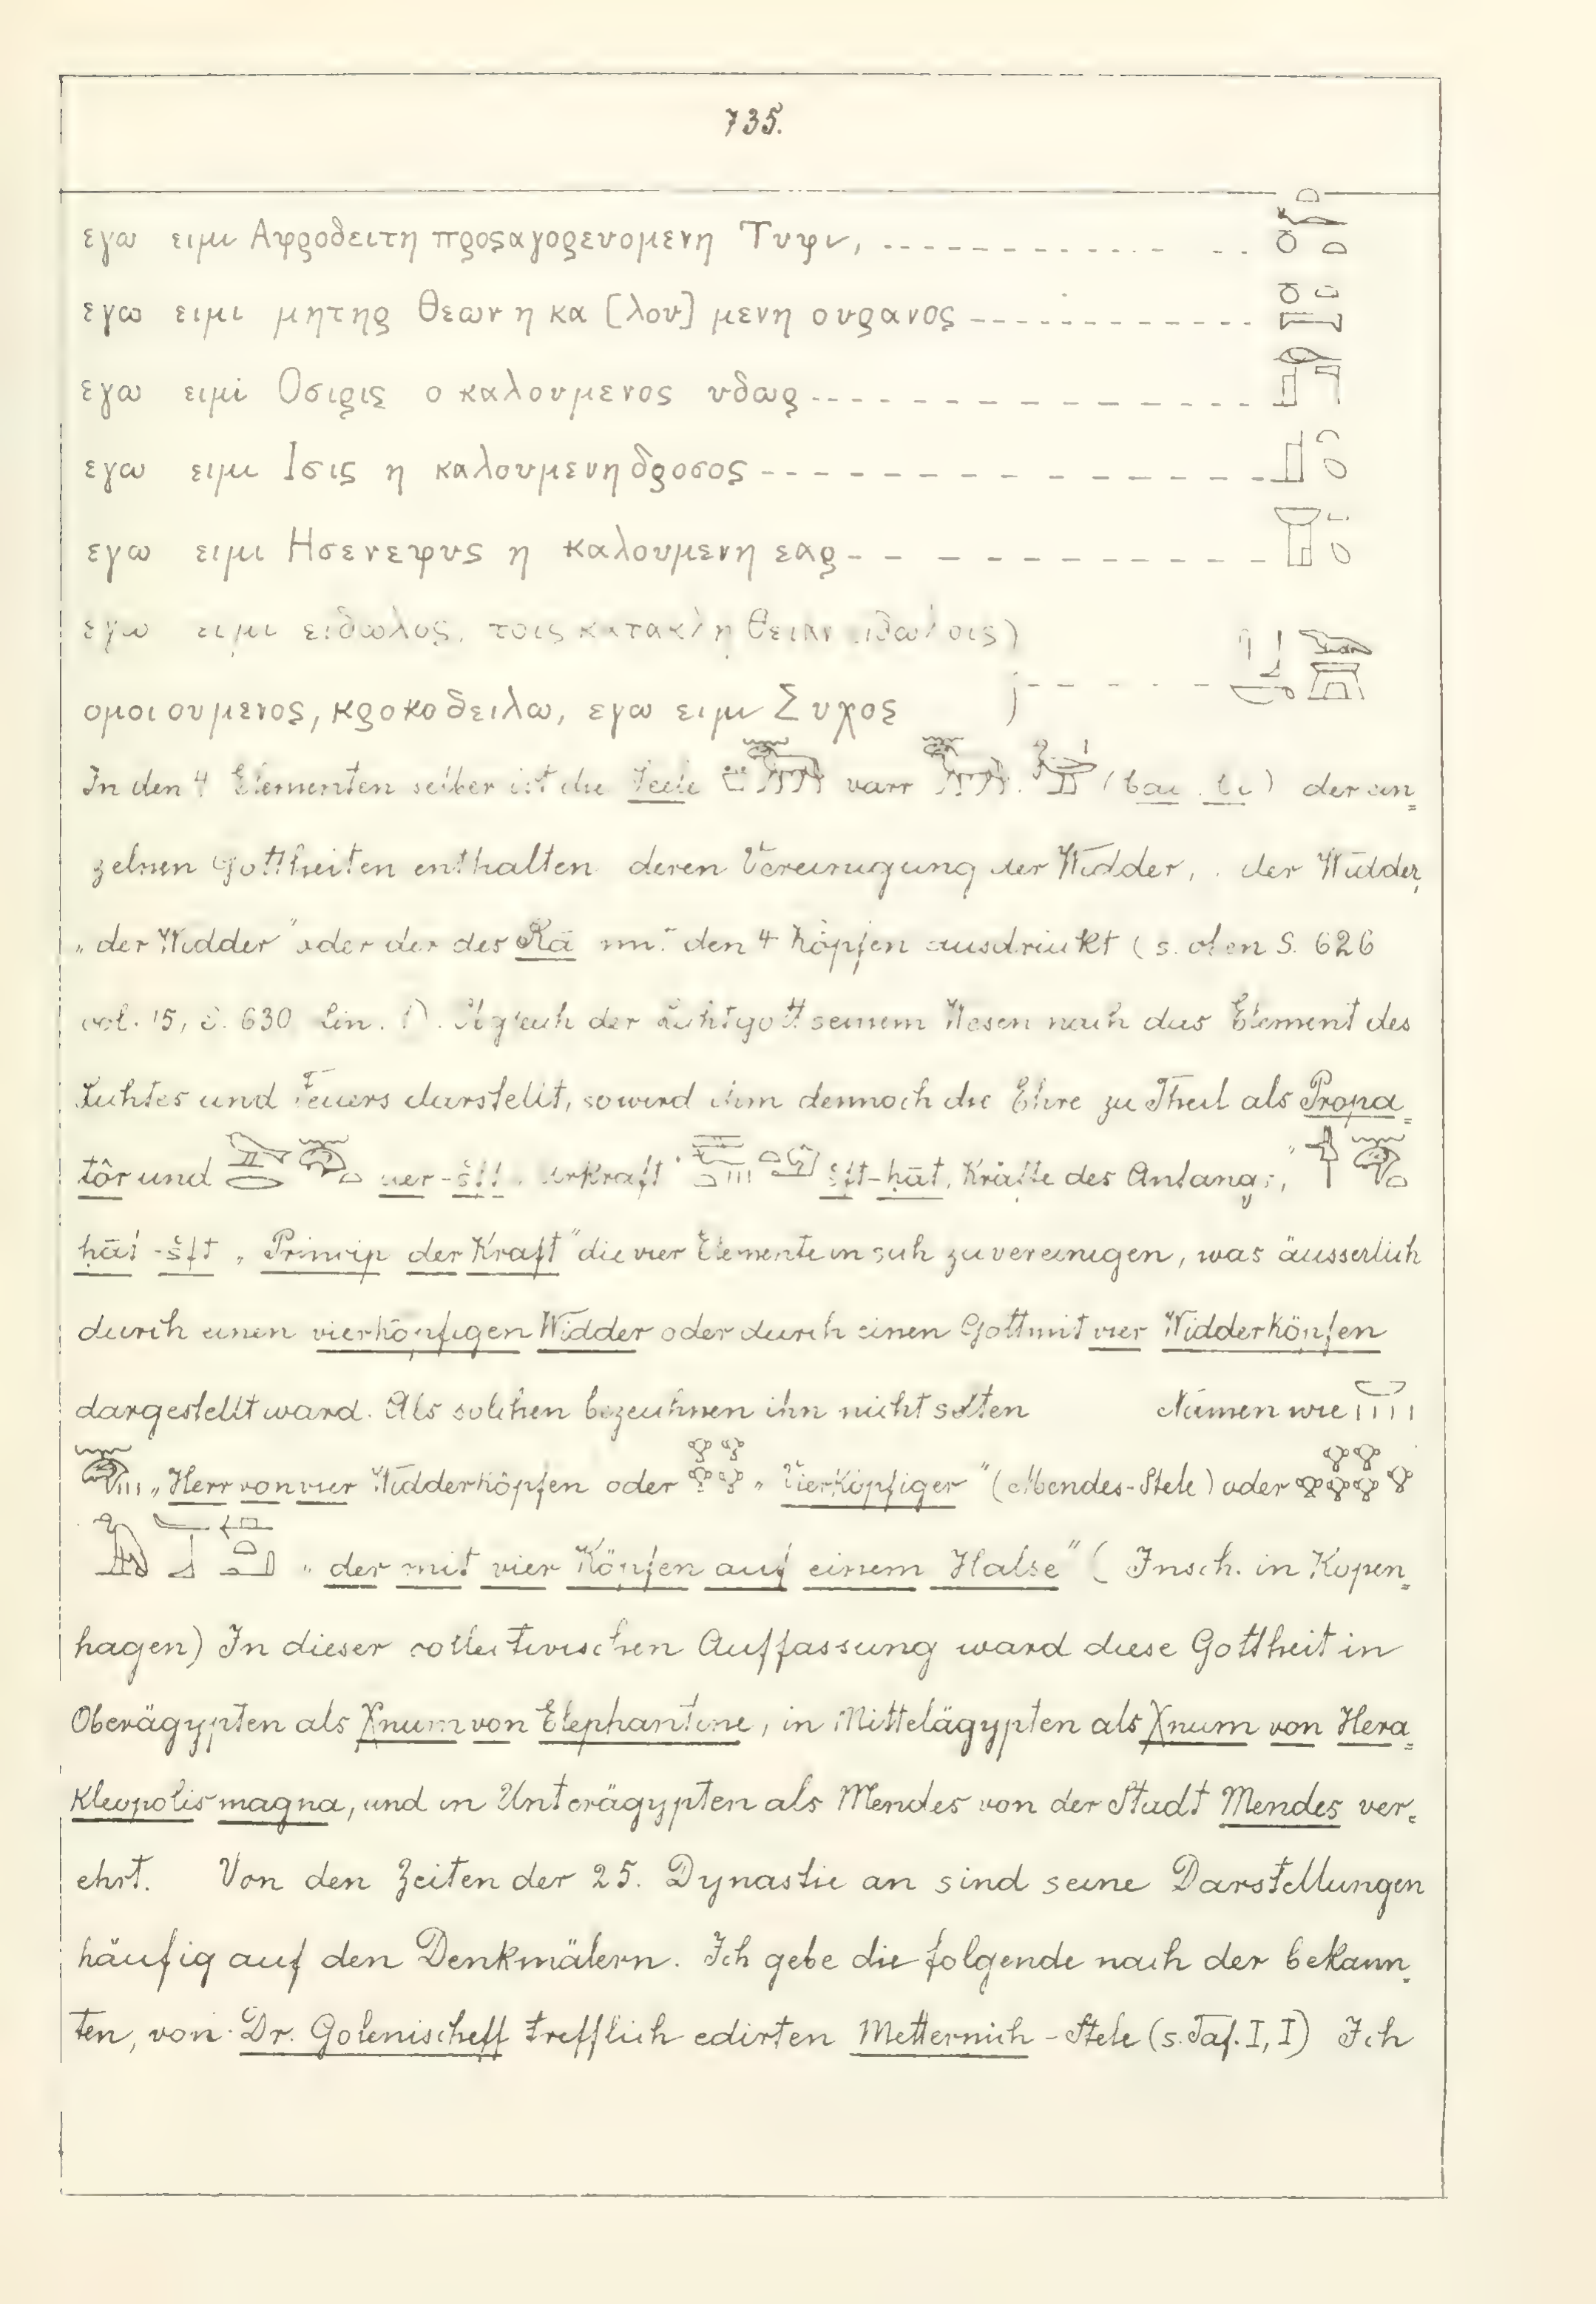 735.
εγω ειμι Αφροδειτη προσαγορευομενη Τυφι,
εγω ειμι μητηρ θεων η κα [λου] μενη ουρανος
εγω ειμι Οσιρις ο καλουμενος υδωρ
εγω ειμι Ισις η καλουμενη δροσος
εγω ειμι Ησενεφυς η καλουμενη εαρ
εγω ειμι ειδωλος, τοις κατα
ομοιουμενος, κροκοδειλω, εγω ειμι Συχος
In den 4 Elementen selber ist die Seele varr (bau) der ein=
zelnen Gottheiten enthalten deren Vereinigung der Widder, der Widder
„der Widder" oder der des Rā mit den 4 Köpfen ausdrückt (s. oben S. 626
col. 15, S. 630 lin. 1). Obgleich der Lichtgott seinem Wesen nach das Element des
Lichtes und Feuers darstellt, so wird ihm dennoch die Ehre zu Theil als Propa=
tôr und uer-šft „Urkraft" šft-ḥāt, Kräfte des Anfangs,"
ḥāt-šft „Princip der Kraft" die vier Elemente in sich zu vereinigen, was äusserlich
durch einen vierköpfigen Widder oder durch einen Gott mit vier Widderköpfen
dargestellt ward. Als solchen bezeichnen ihn nicht selten Namen wie
„Herr von vier Widderköpfen oder „Vierköpfiger" (Mendes-Stele) oder
„der mit vier Köpfen auf einem Halse" (Insch. in Kopen=
hagen) In dieser collectivischen Auffassung ward diese Gottheit in
Oberägypten als Xnum von Elephantine, in Mittelägypten als Xnum von Hera=
kleopolis magna, und in Unterägypten als Mendes von der Stadt Mendes ver=
ehrt. Von den Zeiten der 25. Dynastie an sind seine Darstellungen
häufig auf den Denkmälern. Ich gebe die folgende nach der bekann=
ten, von Dr. Golenischeff trefflich edirten Metternich-Stele (s. Taf. I, I) Ich